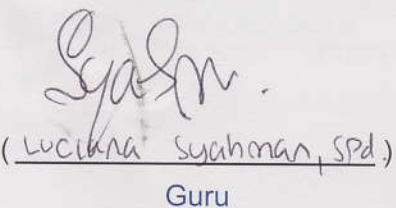 (Luciana Syahman, SPd.)
Guru